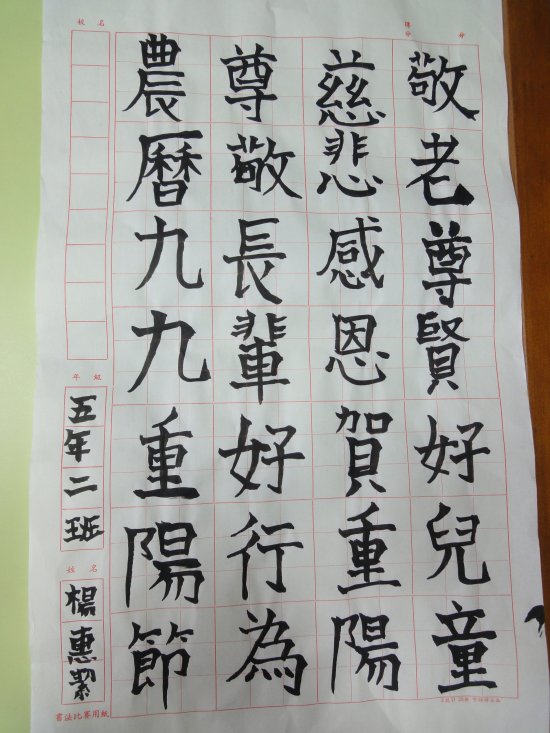 敬老尊賢好兒童
慈悲感恩賀重陽
尊敬長輩好行為
農曆九九重陽節
校名
得分
分
年級
五年二班
姓名
楊惠
書法比賽用紙